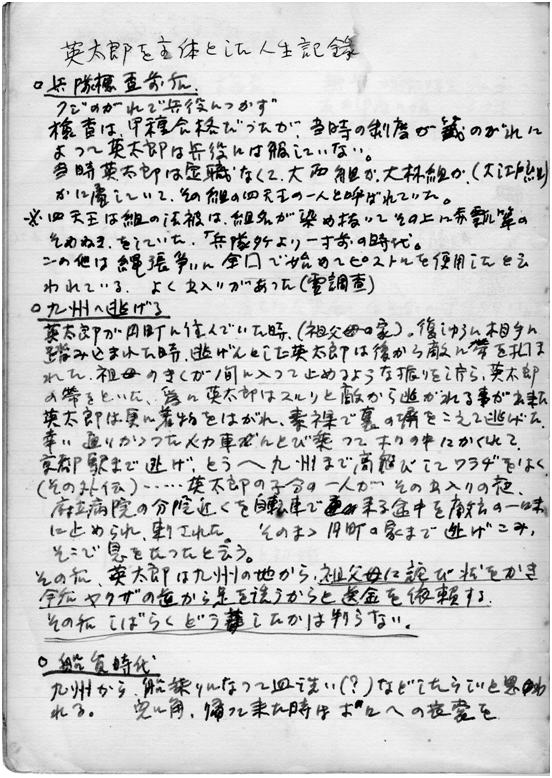 英太郎を主体とした人生記録
○兵隊検査前后
クジのがれで兵役につかず
検査は、甲種合格だつたが、当時の制度が籤のがれに
よつて英太郎は兵役には服していない。
当時英太郎は定職なくて、大西組か、大林組か、(大江戸組)
かに属していて、その組の四天王の一人と呼ばれていた。
※四天王は組の法被は、組名が染め抜いてその上に
そめぬき、をしていた。「兵隊外より一寸前の時代。
この他は縄張争いに全国で始めてピストルを使用したと云
われている。 よく出入りがあつた(要調査)
○九州へ逃げる
英太郎が円町に住んでいた時、(祖父母の家)。復しゆうに相手に
踏み込まれた時、逃げんとした英太郎は後から敵に帯を掴ま
れた。祖母のきくが間に入つて止めるような振りをし乍ら、英太郎
の帯をといた、為に英太郎はスルリと敵から逃がれる事が出来た
英太郎は更に着物をはがれ、素裸で裏の塀をこえて逃げた、
幸い通りかゝつた人力車にとび乗つてホロの中にかくれて、
京都駅まで逃げ、とうへ九州まで高飛びしてワラヂをはく
(その外伝)……英太郎の子分の一人がその出入りの夜、
府立病院の分院近くを自転車で来る途中を敵方の一味
に止められ、刺された。 そのまゝ円町の家まで逃げこみ、
そこで息をたつたと云う。
その后、英太郎は九州の地から、祖父母に詫び状をかき
今后ヤクザの道から足を洗うからと送金を依頼する
その后しばらくどう したかは判らない。
○船員時代
九州から、船乗りになつて皿洗い(?)などしたらしいと思わ
れる。 兎に角、帰つて来た時はボロへの衣裳を